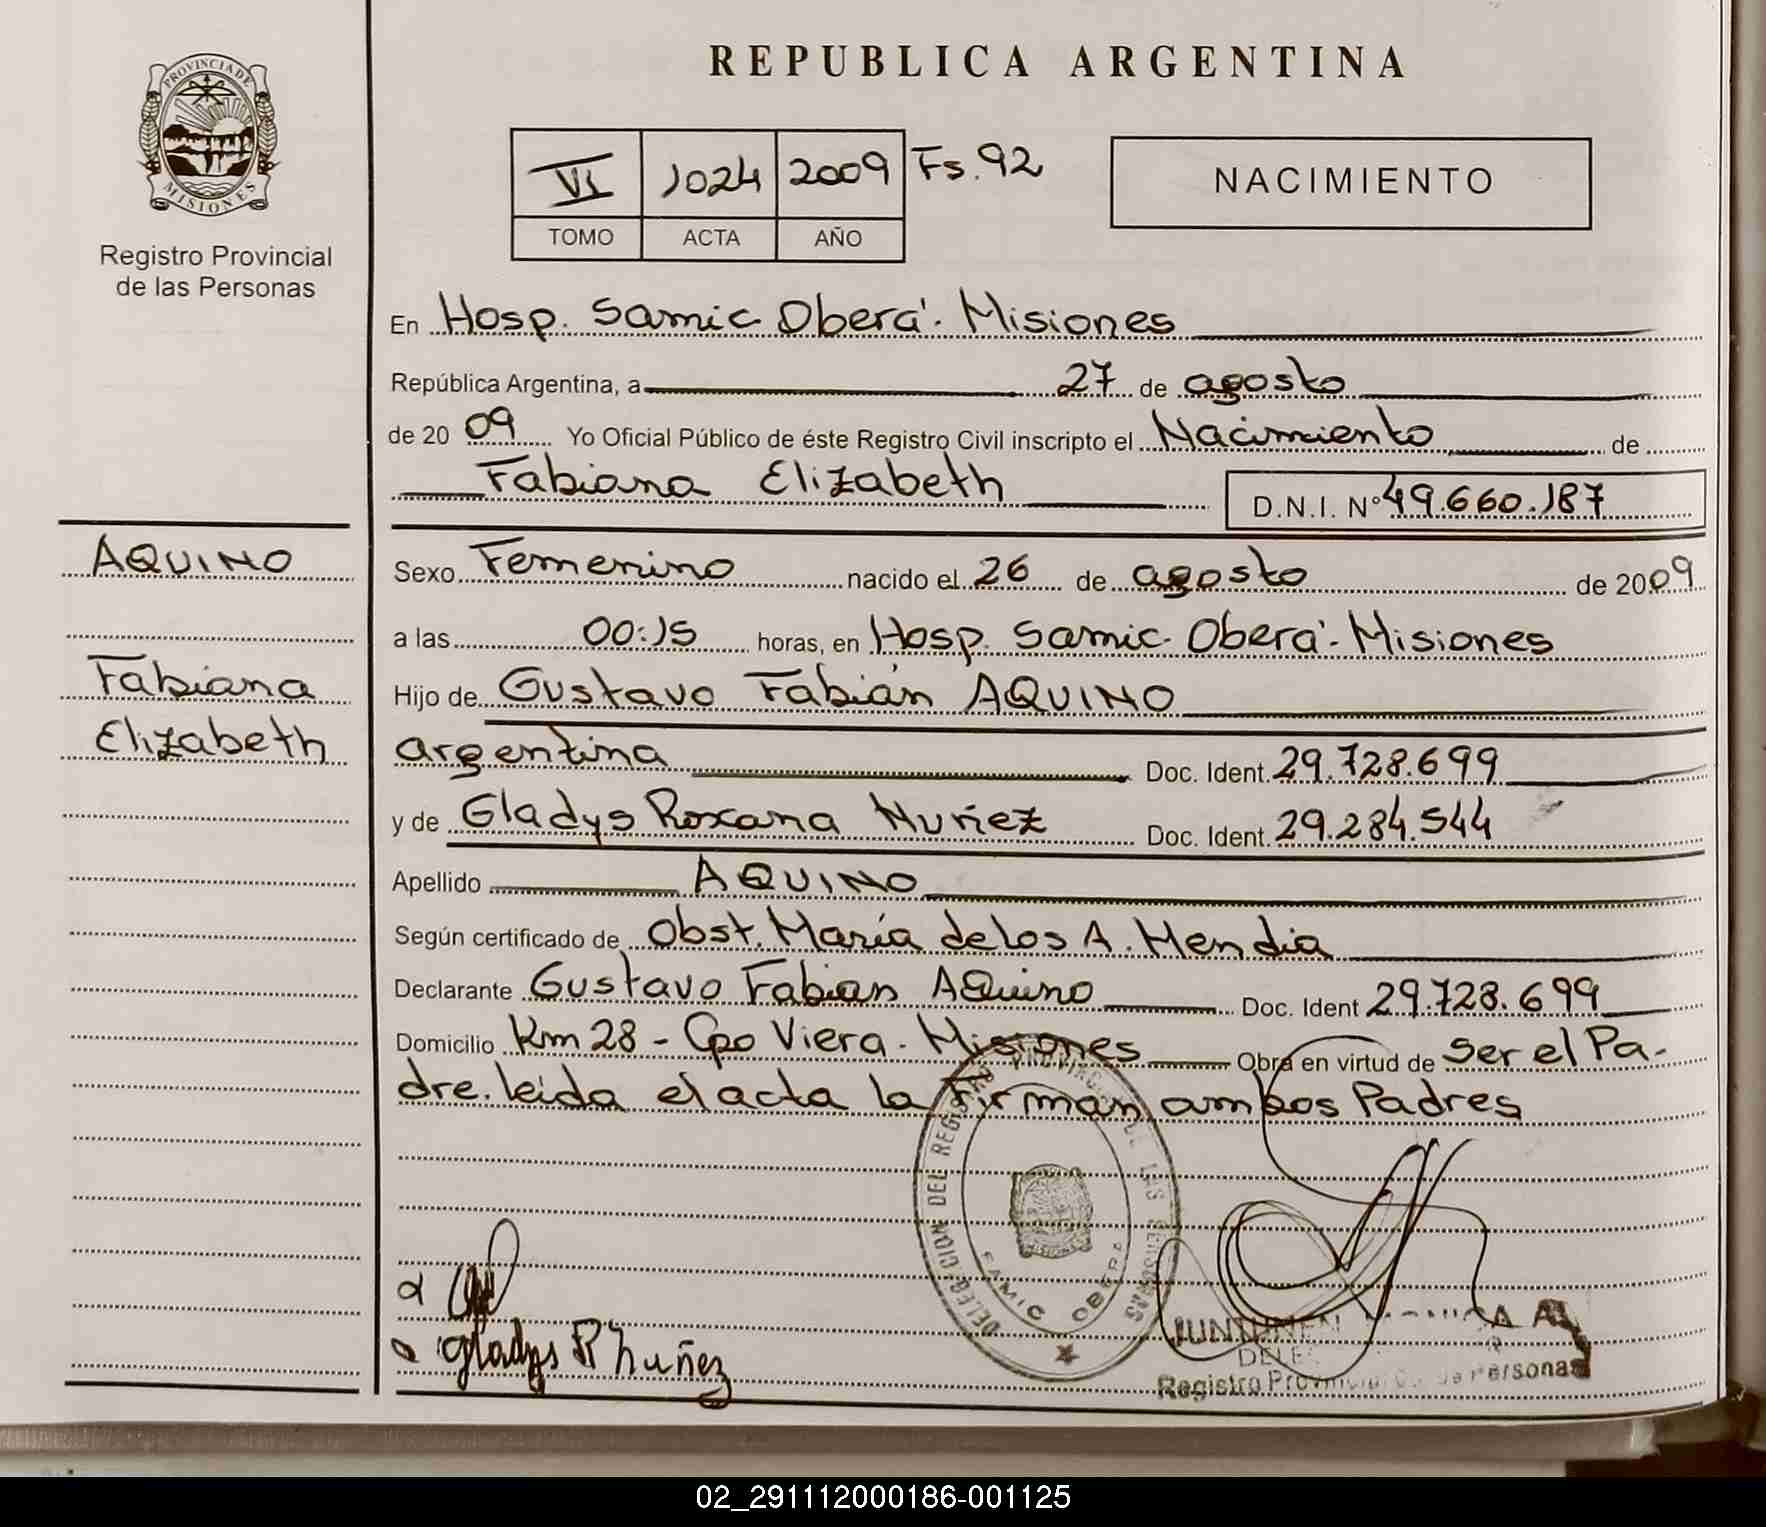 PROVINCIA DE
MISIONES
Registro Provincial
de las Personas
REPUBLICA ARGENTINA
VI 1024 2009 Fs. 92
TOMO ACTA AÑO
NACIMIENTO
En Hosp. Samic Oberá. Misiones
República Argentina, a 27 de agosto
de 20 09 Yo Oficial Público de éste Registro Civil inscripto el Nacimiento de
Fabiana Elizabeth D.N.I. Nº 49.660.187
AQUINO
Fabiana
Elizabeth
Sexo Femenino nacido el 26 de agosto de 2009
a las 00:15 horas, en Hosp. Samic Oberá. Misiones
Hijo de Gustavo Fabián AQUINO
argentina Doc. Ident. 29.728.699
y de Gladys Roxana Nuñez Doc. Ident. 29.284.544
Apellido AQUINO
Según certificado de Obst. María de los A. Hendia
Declarante Gustavo Fabian AQuino Doc. Ident 29.728.699
Domicilio Km 28 - Cpo Viera. Misiones Obra en virtud de Ser el Pa-
dre. leida el acta la firman ambos Padres
DELEGACION DEL REGISTRO PROVINCIAL DE LAS PERSONAS
SAMIC OBERA
Gladys R Nuñez
Registro Provincial de Personas
02_291112000186-001125